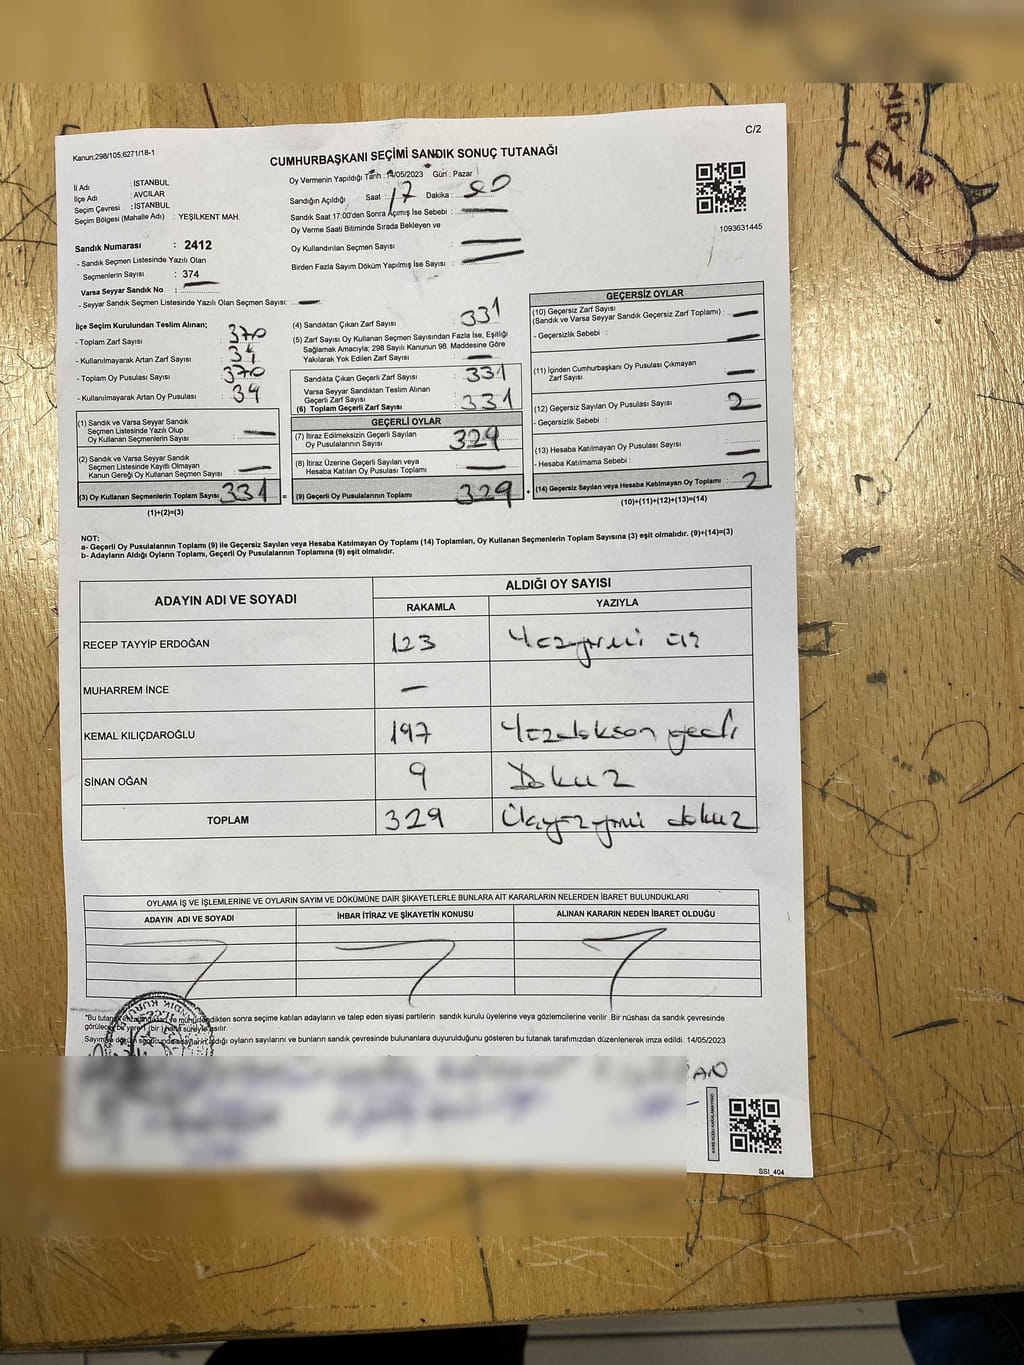 C/2
Kanun;298/105;6271/18-1
CUMHURBAŞKANI SEÇİMİ SANDIK SONUÇ TUTANAĞI
İl Adı : İSTANBUL
İlçe Adı : AVCILAR
Seçim Çevresi : İSTANBUL
Seçim Bölgesi (Mahalle Adı) : YEŞİLKENT MAH.
Sandık Numarası : 2412
- Sandık Seçmen Listesinde Yazılı Olan
Seçmenlerin Sayısı : 374
Varsa Seyyar Sandık No :
- Seyyar Sandık Seçmen Listesinde Yazılı Olan Seçmen Sayısı: —
Oy Vermenin Yapıldığı Tarih : 14/05/2023 Gün : Pazar
Sandığın Açıldığı Saat : 17 Dakika :
Sandık Saat 17:00'den Sonra Açılmış İse Sebebi : —
Oy Verme Saati Bitiminde Sırada Bekleyen ve
Oy Kullandırılan Seçmen Sayısı : —
Birden Fazla Sayım Döküm Yapılmış İse Sayısı : —
1093631445
İlçe Seçim Kurulundan Teslim Alınan;
- Toplam Zarf Sayısı : 370
- Kullanılmayarak Artan Zarf Sayısı :
- Toplam Oy Pusulası Sayısı : 370
- Kullanılmayarak Artan Oy Pusulası : 39
(1) Sandık ve Varsa Seyyar Sandık
Seçmen Listesinde Yazılı Olup
Oy Kullanan Seçmenlerin Sayısı : —
(2) Sandık ve Varsa Seyyar Sandık
Seçmen Listesinde Kayıtlı Olmayan
Kanun Gereği Oy Kullanan Seçmen Sayısı : —
(3) Oy Kullanan Seçmenlerin Toplam Sayısı : 331
(1)+(2)=(3)
(4) Sandıktan Çıkan Zarf Sayısı : 331
(5) Zarf Sayısı Oy Kullanan Seçmen Sayısından Fazla İse, Eşitliği
Sağlamak Amacıyla; 298 Sayılı Kanunun 98. Maddesine Göre
Yakılarak Yok Edilen Zarf Sayısı : —
Sandıkta Çıkan Geçerli Zarf Sayısı : 331
Varsa Seyyar Sandıktan Teslim Alınan
Geçerli Zarf Sayısı :
(6) Toplam Geçerli Zarf Sayısı : 331
GEÇERLİ OYLAR
(7) İtiraz Edilmeksizin Geçerli Sayılan
Oy Pusulalarının Sayısı : 329
(8) İtiraz Üzerine Geçerli Sayılan veya
Hesaba Katılan Oy Pusulası Toplamı : —
= (9) Geçerli Oy Pusulalarının Toplamı : 329
GEÇERSİZ OYLAR
(10) Geçersiz Zarf Sayısı
(Sandık ve Varsa Seyyar Sandık Geçersiz Zarf Toplamı) : —
- Geçersizlik Sebebi : —
(11) İçinden Cumhurbaşkanı Oy Pusulası Çıkmayan
Zarf Sayısı : —
(12) Geçersiz Sayılan Oy Pusulası Sayısı : 2
- Geçersizlik Sebebi :
(13) Hesaba Katılmayan Oy Pusulası Sayısı :
- Hesaba Katılmama Sebebi : —
+ (14) Geçersiz Sayılan veya Hesaba Katılmayan Oy Toplamı : 2
(10)+(11)+(12)+(13)=(14)
NOT:
a- Geçerli Oy Pusulalarının Toplamı (9) ile Geçersiz Sayılan veya Hesaba Katılmayan Oy Toplamı (14) Toplamları, Oy Kullanan Seçmenlerin Toplam Sayısına (3) eşit olmalıdır. (9)+(14)=(3)
b- Adayların Aldığı Oyların Toplamı, Geçerli Oy Pusulalarının Toplamına (9) eşit olmalıdır.
ADAYIN ADI VE SOYADI ALDIĞI OY SAYISI
RAKAMLA YAZIYLA
RECEP TAYYİP ERDOĞAN 123 Yüzyirmi üç
MUHARREM İNCE —
KEMAL KILIÇDAROĞLU 197
SİNAN OĞAN 9 Dokuz
TOPLAM 329 Üçyüzyirmi dokuz
OYLAMA İŞ VE İŞLEMLERİNE VE OYLARIN SAYIM VE DÖKÜMÜNE DAİR ŞİKAYETLERLE BUNLARA AİT KARARLARIN NELERDEN İBARET BULUNDUKLARI
ADAYIN ADI VE SOYADI İHBAR İTİRAZ VE ŞİKAYETİN KONUSU ALINAN KARARIN NEDEN İBARET OLDUĞU
*Bu tutanak imzalandıktan ve mühürlendikten sonra seçime katılan adayların ve talep eden siyasi partilerin sandık kurulu üyelerine veya gözlemcilerine verilir. Bir nüshası da sandık çevresinde
görülecek bir yere 1 (bir) hafta süreyle asılır.
Sayım ve döküm sonucunda adayların aldığı oyların sayılarını ve bunların sandık çevresinde bulunanlara duyurulduğunu gösteren bu tutanak tarafımızdan düzenlenerek imza edildi. 14/05/2023
SSI_404
EMİR